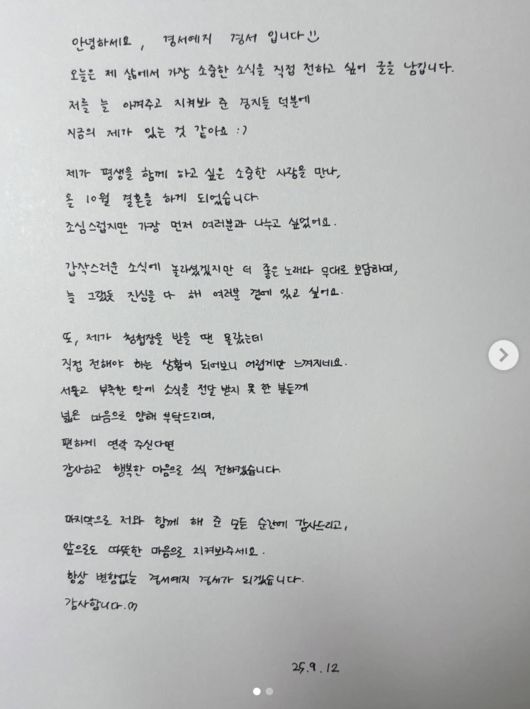 안녕하세요, 경서예지 경서 입니다
오늘은 제 삶에서 가장 소중한 소식을 직접 전하고 싶어 글을 남깁니다.
저를 늘 아껴주고 지켜봐 준 경지들 덕분에
지금의 제가 있는 것 같아요 :)
제가 평생을 함께 하고 싶은 소중한 사람을 만나,
올 10월 결혼을 하게 되었습니다
조심스럽지만 가장 먼저 여러분과 나누고 싶었어요.
갑작스러운 소식에 놀라셨겠지만 더 좋은 노래와 무대로 보답하며,
늘 그랬듯 진심을 다 해 여러분 곁에 있고 싶어요.
또, 제가 청첩장을 받을 땐 몰랐는데
직접 전해야 하는 상황이 되어보니 어렵게만 느껴지네요.
서툴고 부족한 탓에 소식을 전달 받지 못 한 분들께
넓은 마음으로 양해 부탁드리며,
편하게 연락 주신다면
감사하고 행복한 마음으로 소식 전하겠습니다.
마지막으로 저와 함께 해 준 모든 순간에 감사드리고,
앞으로도 따뜻한 마음으로 지켜봐주세요.
항상 변함없는 경서예지 경서가 되겠습니다.
감사합니다.
25.9.12